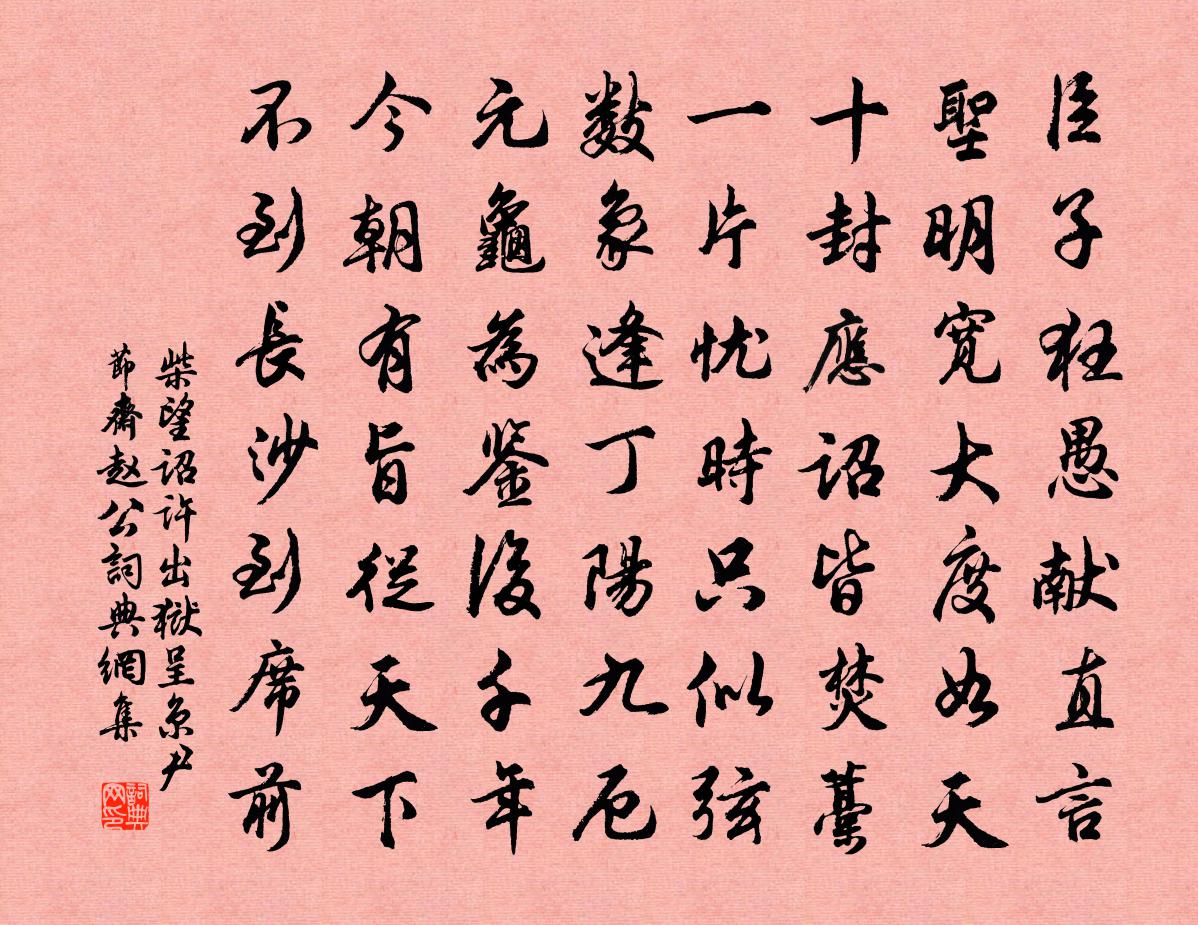 臣子狂愚献直言
聖明宽大度如天
十封應詔皆焚藁
一片忧時只似弦
数象逢丁陽九厄
元龜為鉴後千年
今朝有旨從天下
不到長沙到席前
柴望詔許出獄呈京尹
節齋赵公詞典網集
詞典网印